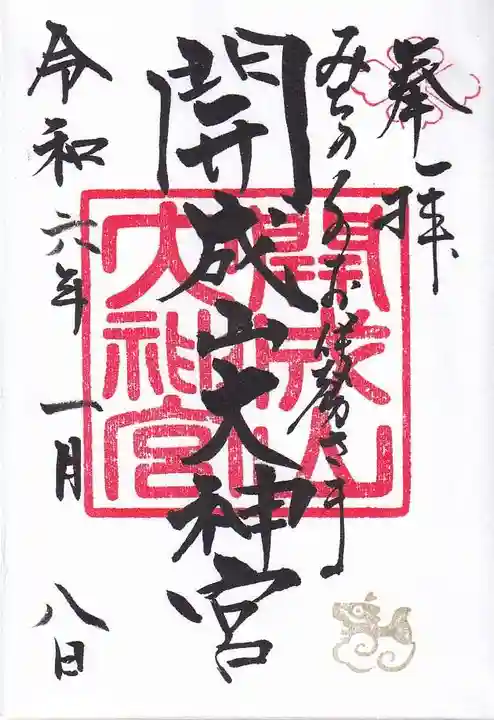 奉拝
みちのくのお伊勢さま
開成山大神宮
令和六年 一月 八日
開成山
大神宮